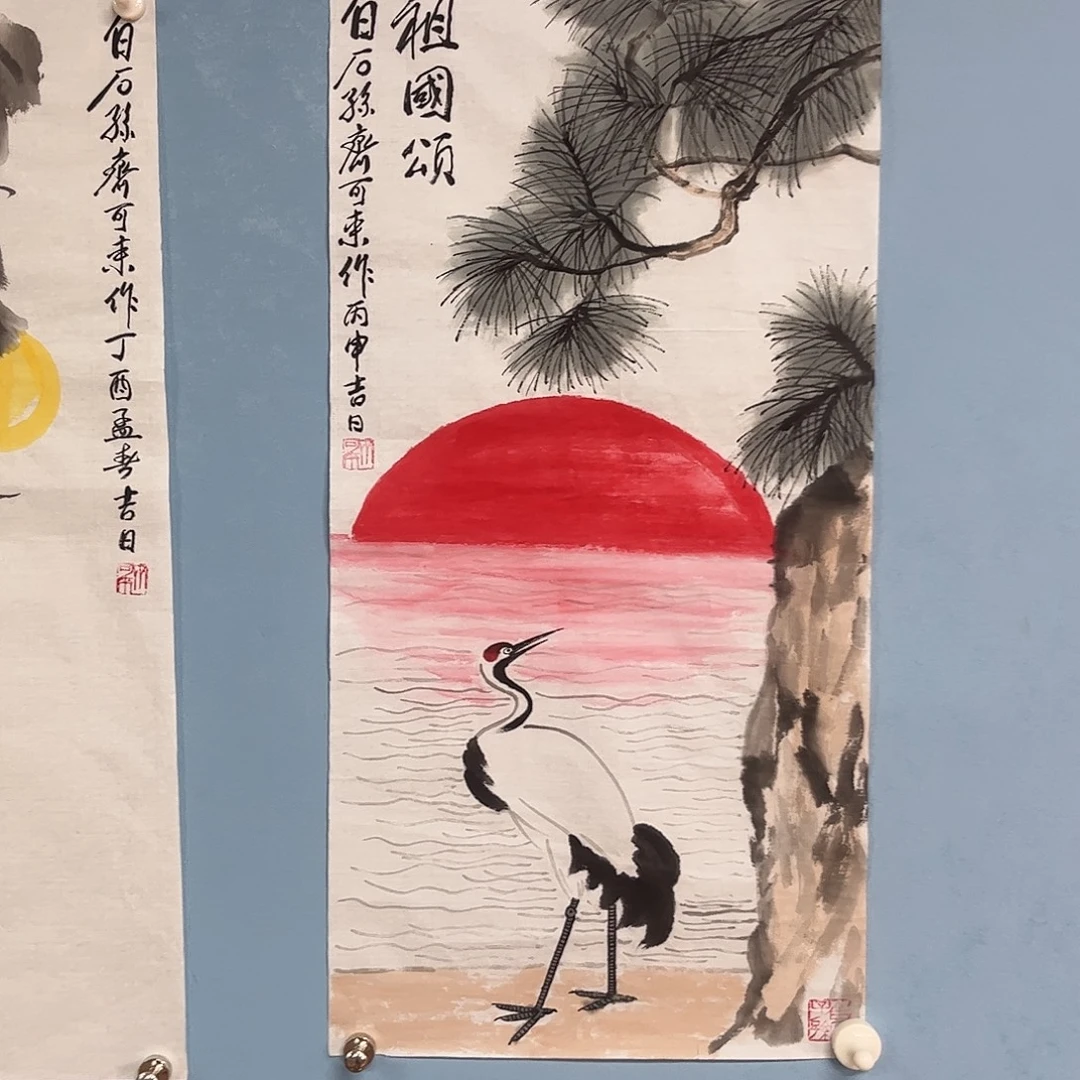 祖國頌
白石孫齊可来作丙申吉日
白石孫齊可来作丁酉孟春吉日